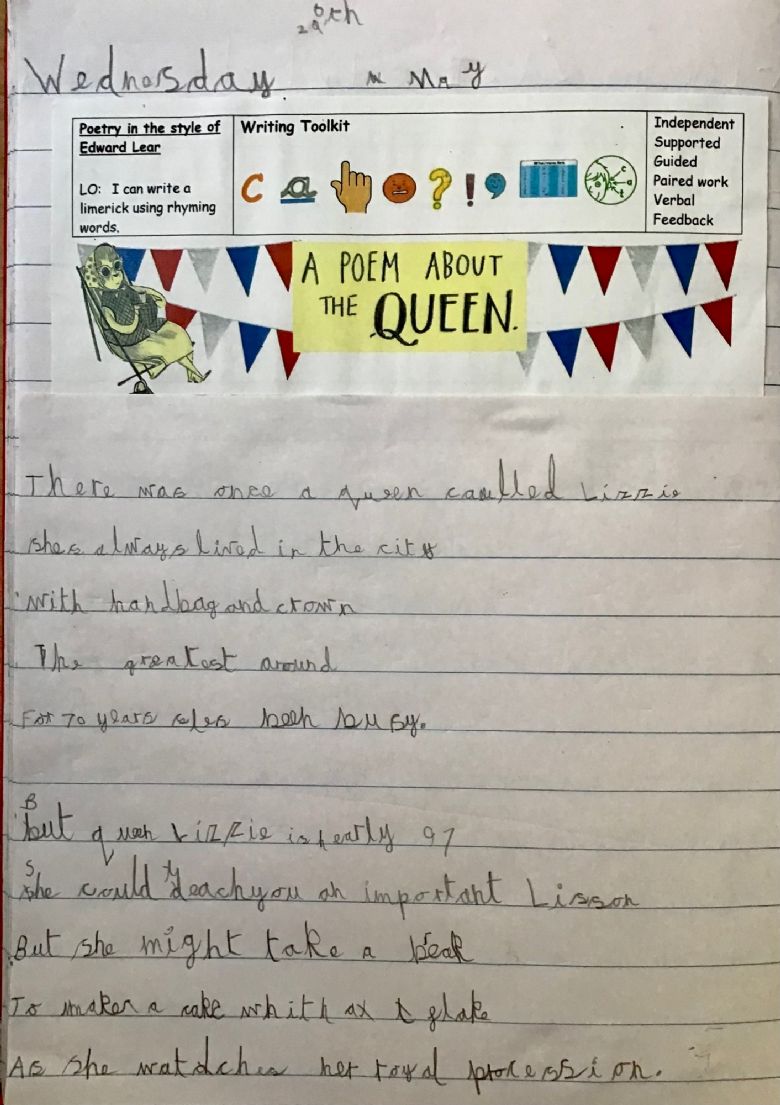 Wednesday May
Poetry in the style of
Edward Lear
LO: I can write a
limerick using rhyming
words.
Writing Toolkit
Independent
Supported
Guided
Paired work
Verbal
Feedback
A POEM ABOUT
THE QUEEN.
There was once a queen caulled Lizzie
shes always lived in the city
with handbag and crown
The greatest around
For 70 years shes been busy.
But queen Lizzie is nearly 97
She could teach you an important Lisson
But she might take a break
To maken a cake whith a flake
As she watdches her royal procession.